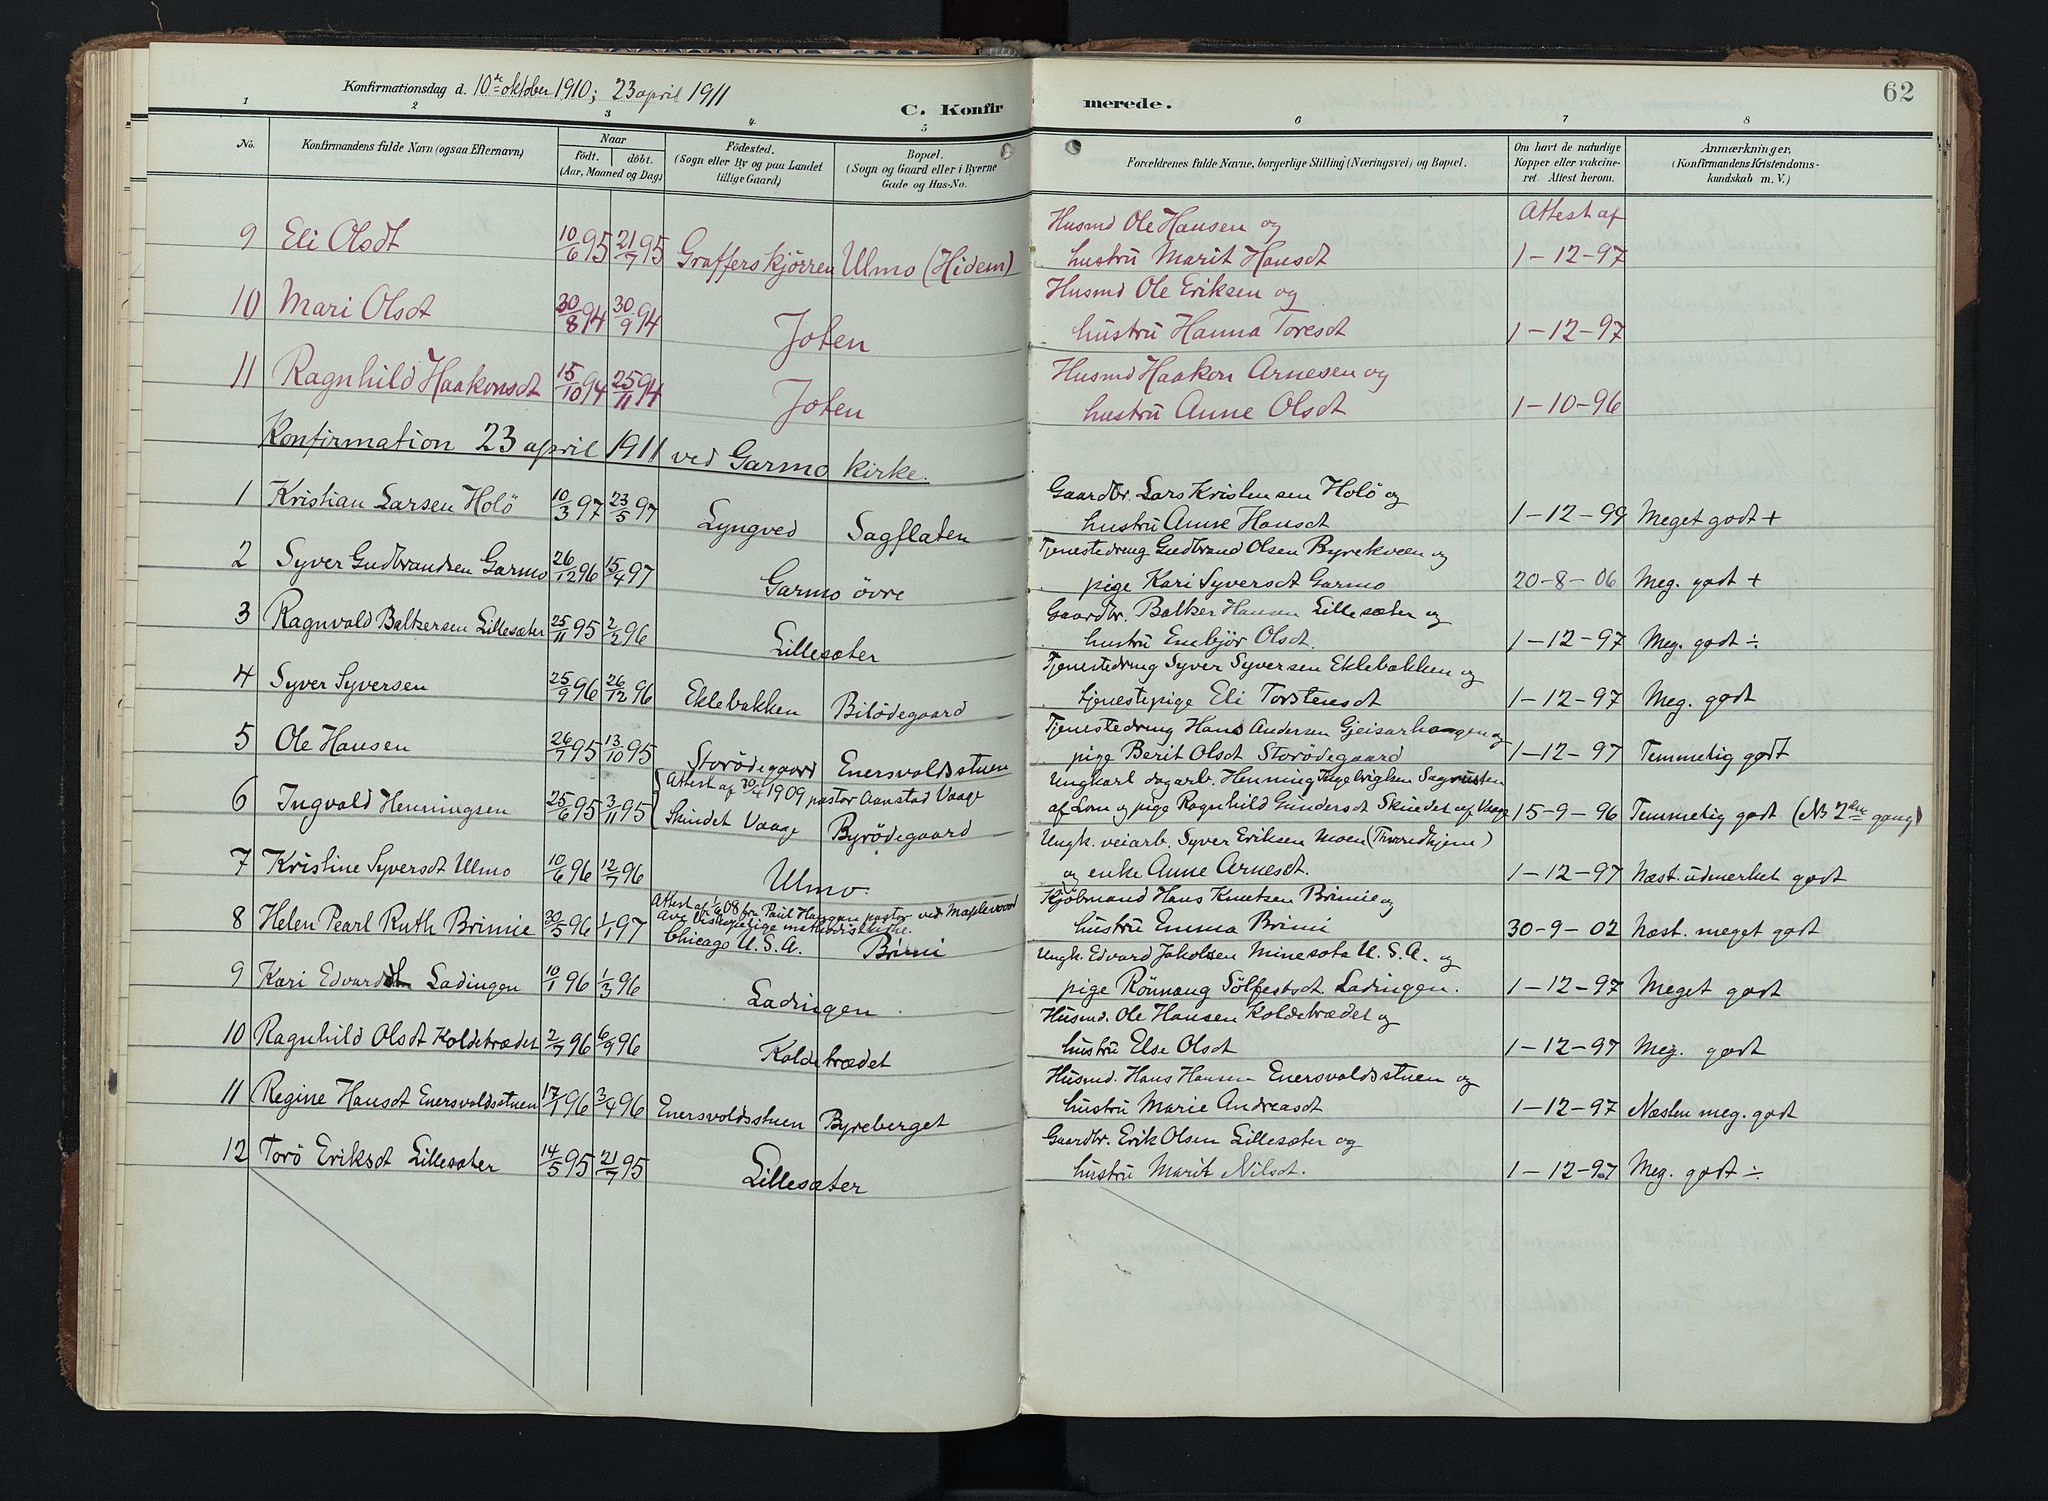 62
Konfirmationsdag d. 10de oktober 1910; 23 april 1911
C. Konfirmerede.
1 2 3 4 5 6 7 8
No.
Konfirmandens fulde Navn (ogsaa Efternavn).
Naar
födt. döbt.
(Aar, Maaned og Dag)
Födested.
(Sogn eller By og paa Landet
tillige Gaard)
Bopæl.
(Sogn og Gaard eller i Byerne
Gade og Hus-No.
Forældrenes fulde Navne, borgerlige Stilling (Næringsvei) og Bopæl.
Om havt de naturlige
Kopper eller vakcine-
ret. Attest herom.
Anmærkninger,
(Konfirmandens Kristendoms-
kundskab m. V.)
Husmd Ole Hansen og Attest af
9 Eli Olsdt 10/6 95 21/7 95 Graffers kjørren Ulmo (Hidem) hustru Marit Hansdt 1-12-97
Husmd Ole Eriksen og
10 Mari Olsdt 30/8 94 30/9 94 Joten hustru Hanna Toresdt 1-12-97
Husmd Haakon Arnesen og
11 Ragnhild Haakonsdt 15/10 94 25/11 94 Joten hustru Anne Olsdt 1-10-96
Konfirmation 23 april 1911 ved Garmo kirke.
Gaardbr. Lars Kristensen Holö og
1 Kristian Larsen Holö 10/3 97 23/5 97 Lyngved Sagflaten hustru Anne Hansdt 1-12-99 Meget godt +
Tjenestedreng Gudbrand Olsen Byrekveen og
2 Syver Gudbrandsen Garmo 26/12 96 15/4 97 Garmo övre pige Kari Syversdt Garmo 20-8-06 Meg. godt +
Gaardbr. Balker Hansen Lillesæter og
3 Ragnvald Balkersen Lillesæter 25/11 95 2/2 96 Lillesæter hustru Embjör Olsdt. 1-12-97 Meg. godt ÷
Tjenestedreng Syver Syversen Eklebakken og
4 Syver Syversen 25/9 96 26/12 96 Eklebakken Bilödegaard tjenestepige Eli Torstensdt 1-12-97 Meg. godt
Tjenestedreng Hans Andersen Gjeisarhaugen og
5 Ole Hansen 26/7 95 13/10 95 Storödegaard Enersvoldsstuen pige Berit Olsdt Storödegaard 1-12-97 Temmelig godt
Attest af 30/4 1909 pastor Aanstad Vaage Ungkarl dagarb. Henning Ingebrigtsen Sagrusten
6 Ingvald Henningsen 25/6 95 3/11 95 Skindet Vaage Byrödegaard af Lom og pige Ragnhild Gundersdt Skindet af Vaage 15-9-96 Temmelig godt (No 2den gang)
Ungk. veiarb. Syver Eriksen Moen
7 Kristine Syversdt Ulmo 10/6 96 12/7 96 Ulmo og enke Anne Arnesdt. 1-12-97 Næst. udmerket godt
Attest af 1/6 08 fra Paul Haugan pastor ved Maplewood Kjöbmand Hans Knutsen Brimie og
Ave biskopelige methodistkirke.
8 Helen Pearl Ruth Brimie 30/5 96 1/1 97 Chicago U.S.A. Brimi hustru Emma Brimi 30-9-02 Næst. meget godt
Ungk. Edvard Jakobsen Minesota U.S.A. og
9 Kari Edvardsdt Ladingen 10/1 96 1/3 96 Ladingen pige Rönnaug Sölfestsdt. Ladingen. 1-12-97 Meget godt
Husmd. Ole Hansen Koldebrædet og
10 Ragnhild Olsdt Koldebrædet 2/7 96 6/9 96 Koldebrædet hustru Else Olsdt 1-12-97 Meg. godt
Husmd. Hans Hansen Enersvoldsstuen og
11 Regine Hansdt Enersvoldsstuen 17/1 96 3/4 96 Enersvoldsstuen Byreberget hustru Marie Andreasdt 1-12-97 Næsten meg. godt
Gaardbr. Erik Olsen Lillesæter og
12 Torö Eriksdt Lillesæter 14/5 95 21/7 95 Lillesæter hustru Marit Nilsdt. 1-12-97 Meg. godt ÷